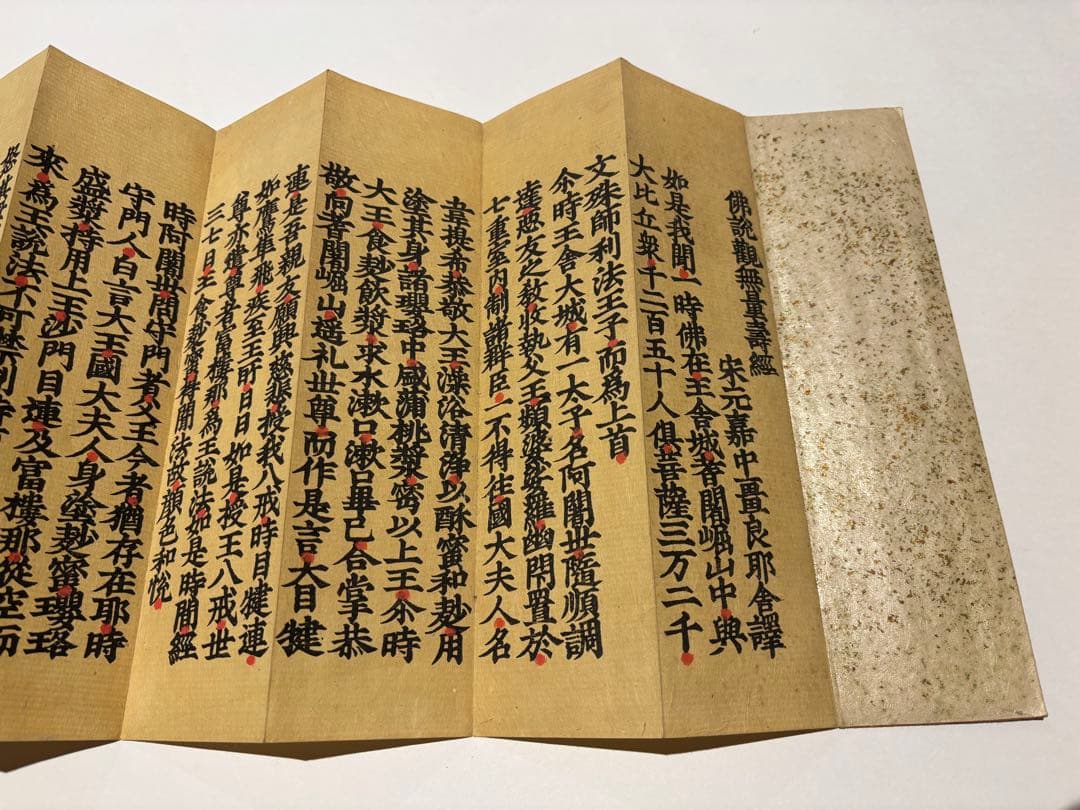 佛說觀無量壽經
宋元嘉中畺良耶舍譯
如是我聞一時佛在王舍城耆闍崛山中與
大比丘衆千二百五十人俱菩薩三万二千
文殊師利法王子而為上首
尒時王舍大城有一太子名阿闍世隨順調
達惡友之教收執父王頻婆娑羅幽閇置於
七重室内制諸羣臣一不得往國大夫人名
韋提希恭敬大王澡浴清淨以酥蜜和麨用
塗其身諸瓔珞中盛蒲桃漿密以上王尒時
大王食麨飲漿求水漱口漱口畢已合掌恭
敬向耆闍崛山遥礼世尊而作是言大目犍
連是吾親友願興慈悲授我八戒時目犍連
如鷹隼飛疾至王所日日如是授王八戒世
尊亦遣尊者富樓那為王說法如是時間經
三七日王食麨蜜得聞法故顏色和悅
時阿闍世問守門者父王今者猶存在耶時
守門人白言大王國大夫人身塗麨蜜瓔珞
盛漿持用上王沙門目連及富樓那從空而
來為王說法不可禁制時